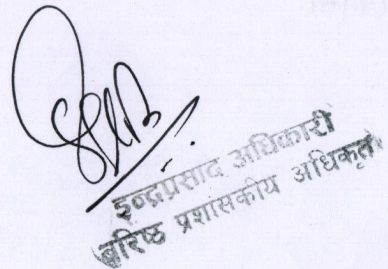 इन्द्रप्रसाद अधिकारी
बरिष्ठ प्रशासकीय अधिकृत